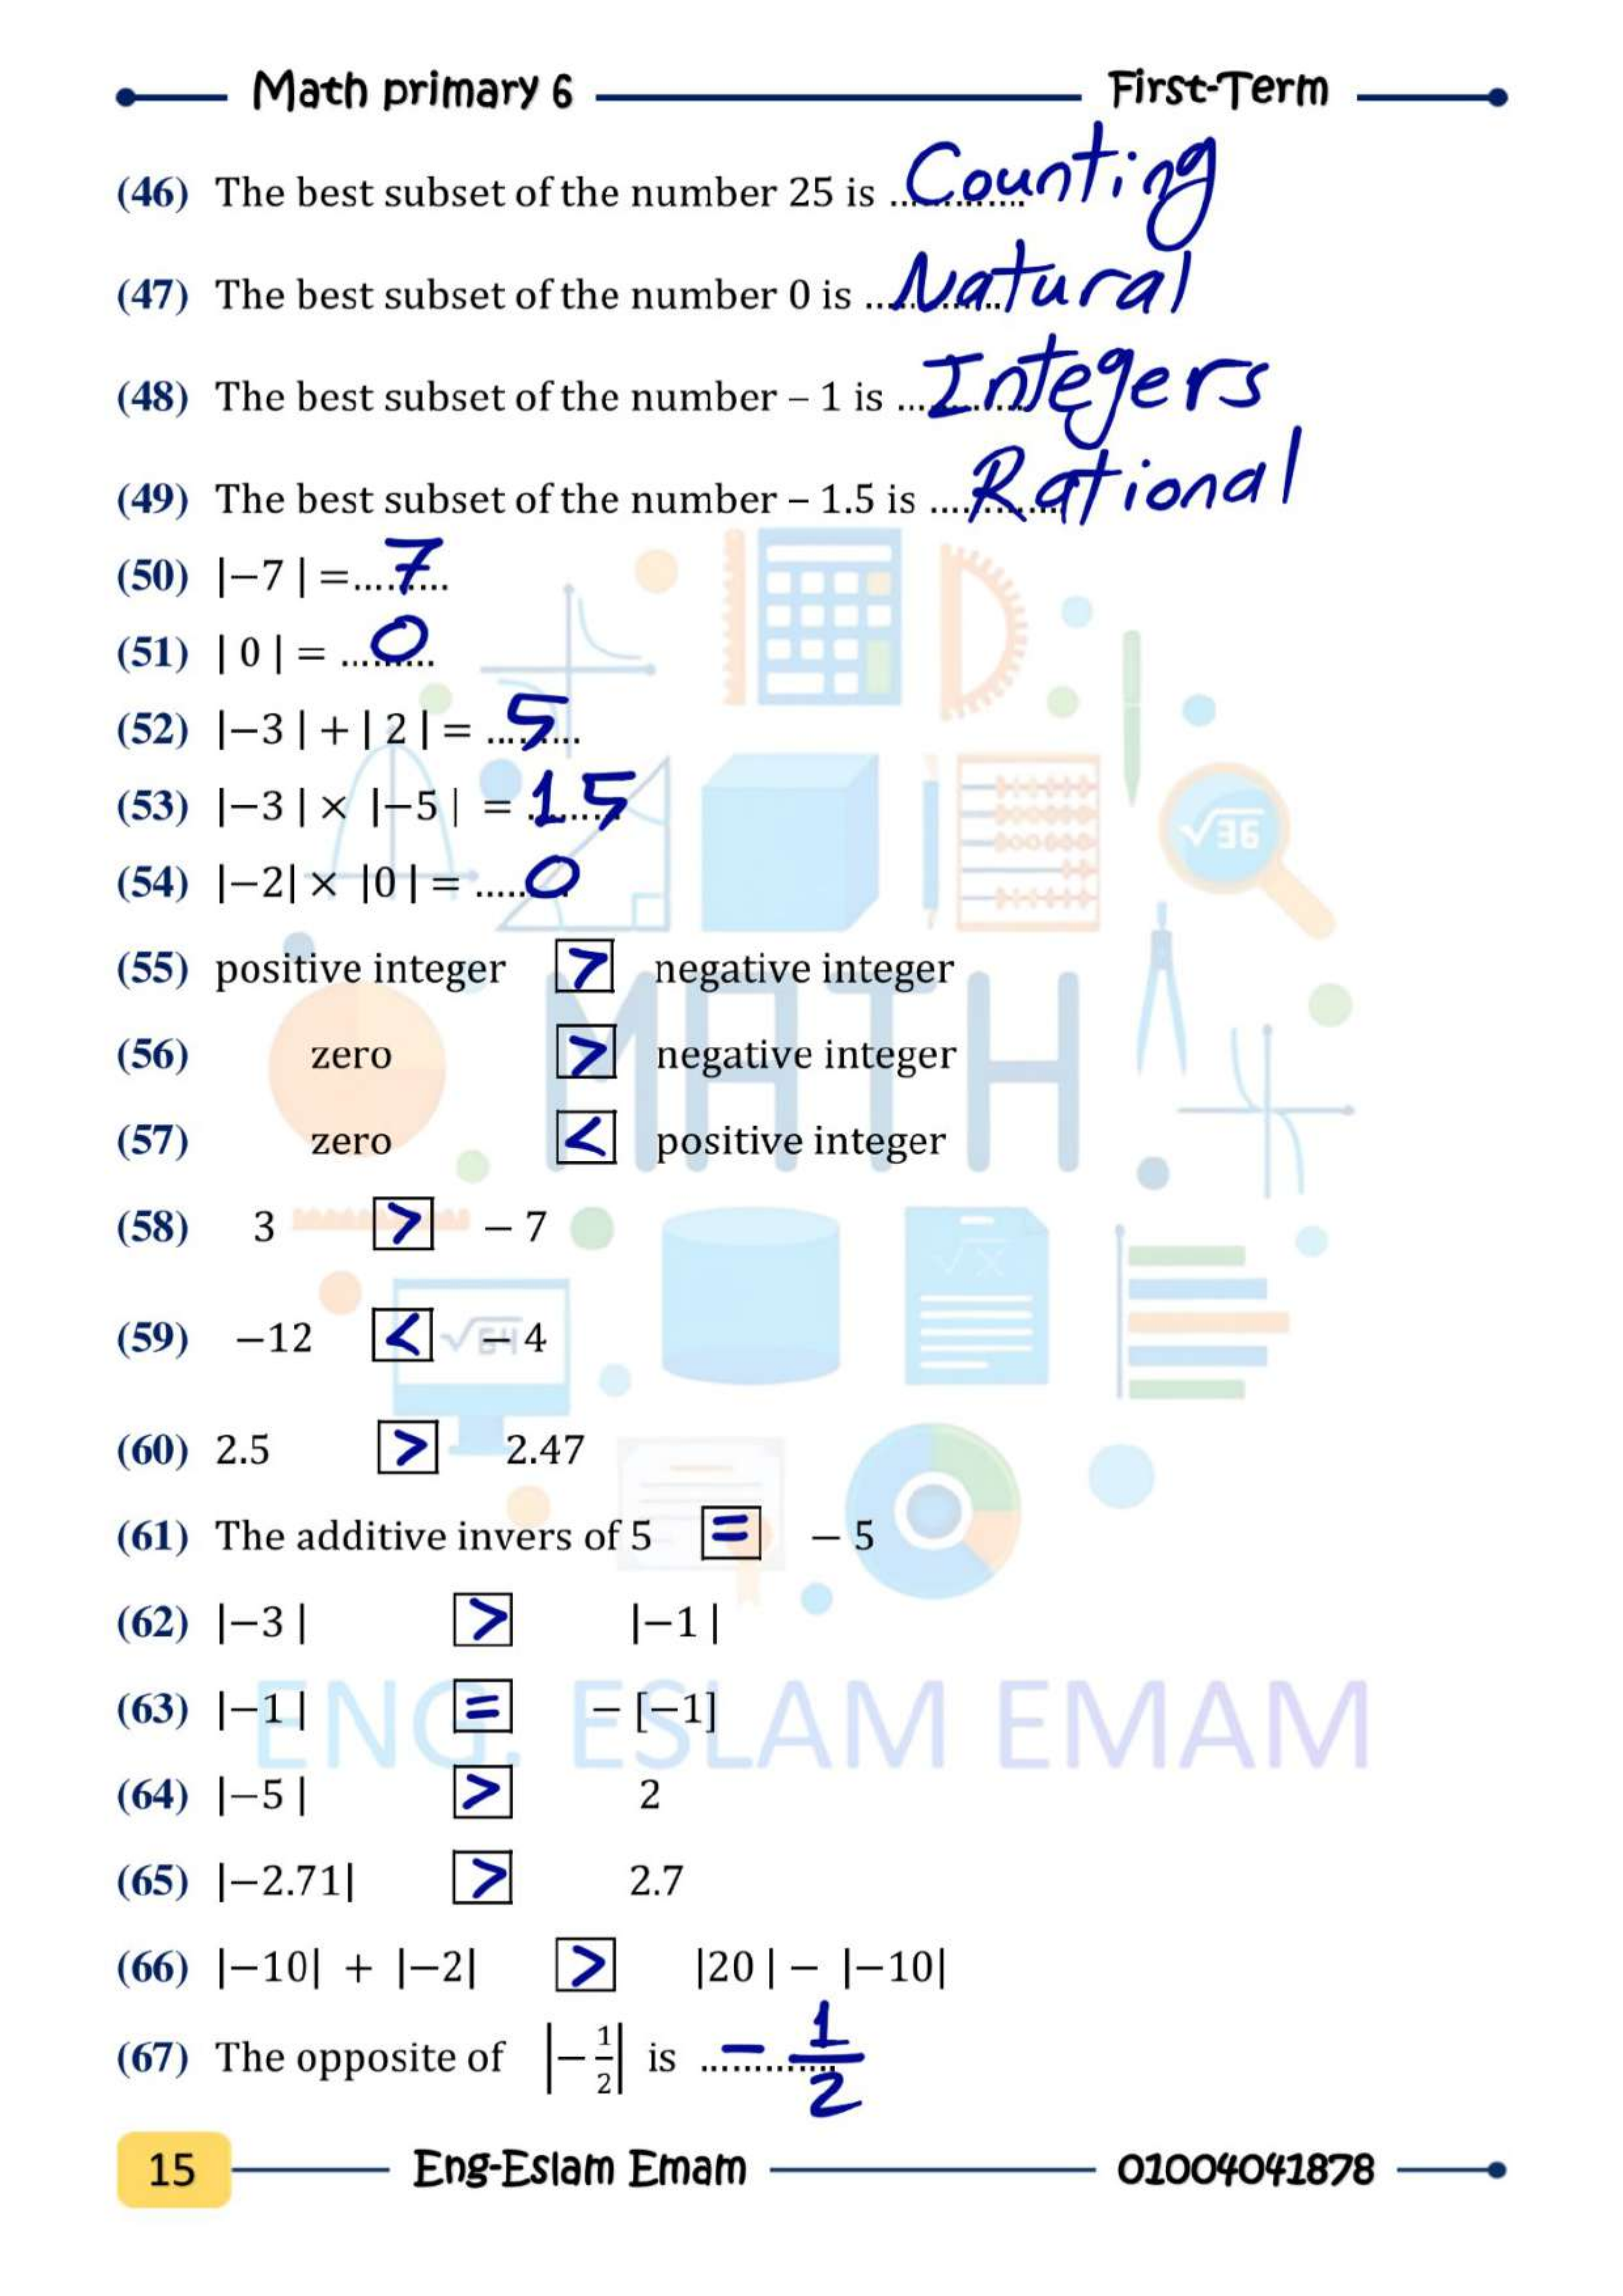 Math primary 6 First-Term
(46) The best subset of the number 25 is ............. Counting
(47) The best subset of the number 0 is ............. Natural
(48) The best subset of the number – 1 is ............. Integers
(49) The best subset of the number – 1.5 is ............. Rational
(50) |−7 | =......... 7
(51) | 0 | = ......... 0
(52) |−3 | + | 2 | = ......... 5
(53) |−3 | × |−5 | = ......... 15
(54) |−2| × |0 | = ......... 0
(55) positive integer > negative integer
(56) zero > negative integer
(57) zero < positive integer
(58) 3 > − 7
(59) −12 < − 4
(60) 2.5 > 2.47
(61) The additive invers of 5 = − 5
(62) |−3 | > |−1 |
(63) |−1 | = − [−1]
(64) |−5 | > 2
(65) |−2.71| > 2.7
(66) |−10| + |−2| > |20 | − |−10|
(67) The opposite of |−1/2| is ............. − 1/2
√36
MATH
√x
√64
ENG. ESLAM EMAM
15 Eng-Eslam Emam 01004041878